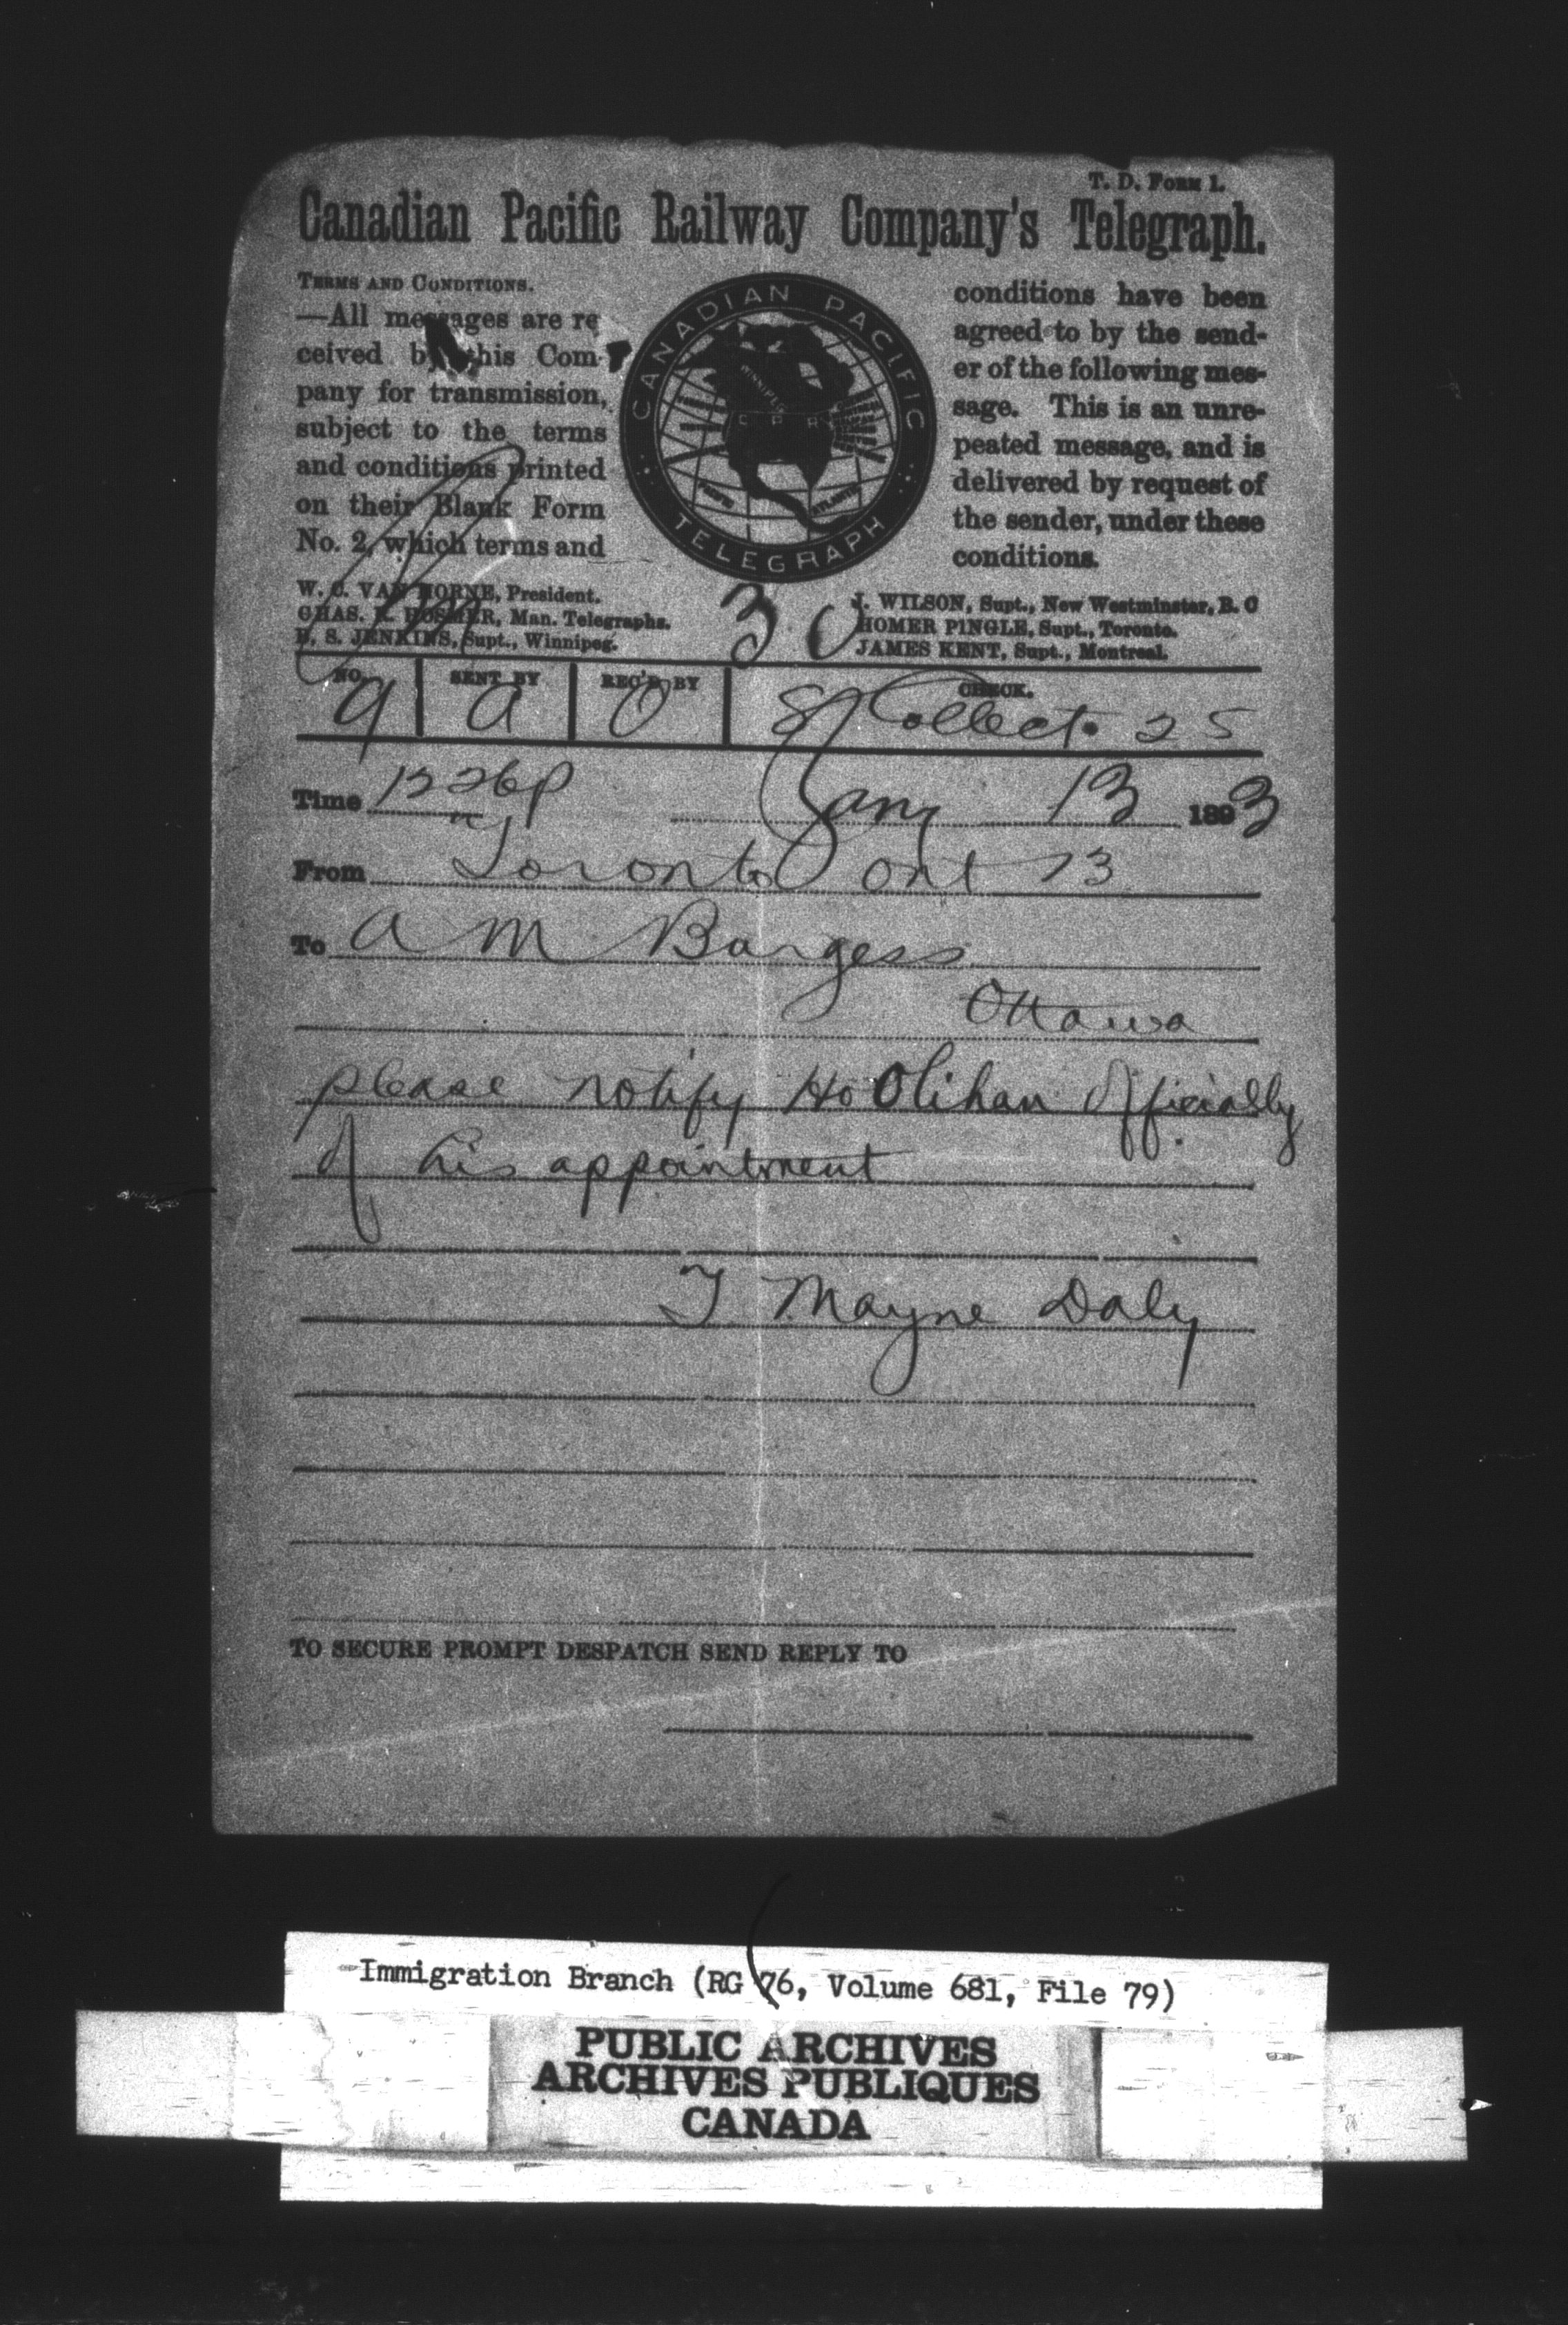 T. D. FORM 1.
Canadian Pacific Railway Company's Telegraph.
TERMS AND CONDITIONS.
—All messages are re
ceived by this Com-
pany for transmission,
subject to the terms
and conditions printed
on their Blank Form
No. 2, which terms and
CANADIAN PACIFIC
TELEGRAPH
WINNIPEG
C P R
PACIFIC
ATLANTIC
conditions have been
agreed to by the send-
er of the following mes-
sage. This is an unre-
peated message, and is
delivered by request of
the sender, under these
conditions.
W. C. VAN HORNE, President.
CHAS. R. HOSMER, Man. Telegraphs.
B. S. JENKINS, Supt., Winnipeg.
30
J. WILSON, Supt., New Westminster, B. C
HOMER PINGLE, Supt., Toronto.
JAMES KENT, Supt., Montreal.
NO. SENT BY REC'D BY CHECK.
9 a O Collect. 25
Time 1226p Jany 13 1893
From Toronto Ont 13
To A M Burgess
Ottawa
please notify HoOlihan Officially
of his appointment
T Mayne Daly
TO SECURE PROMPT DESPATCH SEND REPLY TO
Immigration Branch (RG 76, Volume 681, File 79)
PUBLIC ARCHIVES
ARCHIVES PUBLIQUES
CANADA